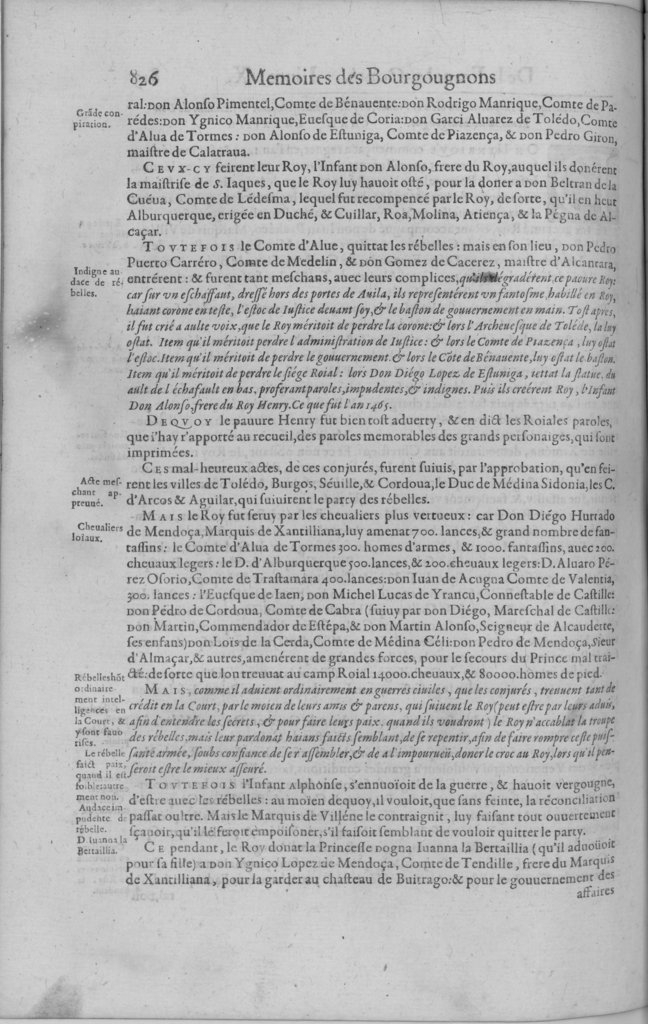 826 Memoires des Bourgougnons
ral: DON Alonso Pimentel, Comte de Bénauente: DON Rodrigo Manrique, Comte de Pa-
Grãde con-
piration.
rédes: DON Ygnico Manrique, Euesque de Coria: DON Garci Aluarez de Tolédo, Comte
d'Alua de Tormes: DON Alonso de Estuniga, Comte de Piazença, & DON Pedro Giron,
maistre de Calatraua.
CEVX-CY feirent leur Roy, l'Infant DON Alonso, frere du Roy, auquel ils donérent
la maistrise de S. Iaques, que le Roy luy hauoit osté, pour la doner a DON Beltran de la
Cuéua, Comte de Lédesma, lequel fut recompencé par le Roy, de sorte, qu'il en heut
Alburquerque, erigée en Duché, & Cuillar, Roa, Molina, Atiença, & la Pégna de Al-
caçar.
TOVTEFOIS le Comte d'Alue, quittat les rébelles: mais en son lieu, DON Pedro
Puerto Carréro, Comte de Medelin, & DON Gomez de Cacerez, maistre d'Alcantara,
Indigne au
dace de ré-
belles.
entrérent: & furent tant meschans, auec leurs complices, qu'ils dégradérent ce pauure Roy:
car sur vn eschaffaut, dressé hors des portes de Auila, ils representérent vn fantosme, habillé en Roy,
haiant corone en teste, l'estoc de Iustice deuant soy, & le baston de gouuernement en main. Tost apres,
il fut crié a aulte voix, que le Roy méritoit de perdre la corone: & lors l'Archeuesque de Toléde, la luy
ostat. Item qu'il méritoit perdre l'administration de Iustice: & lors le Comte de Piazença, luy ostat
l'estoc. Item qu'il méritoit de perdre le gouuernement. & lors le Cõte de Bénauente, luy ostat le baston.
Item qu'il méritoit de perdre le siége Roial: lors Don Diégo Lopez de Estuniga, iettat la statue, du
ault de l'échafault en bas, proferant paroles, impudentes, & indignes. Puis ils creérent Roy, l'Infant
Don Alonso, frere du Roy Henry. Ce que fut l'an 1465.
DEQVOY le pauure Henry fut bien tost aduerty, & en dict les Roiales paroles,
que i'hay r'apporté au recueil, des paroles memorables des grands personaiges, qui sont
imprimées.
CES mal-heureux actes, de ces conjurés, furent suiuis, par l'approbation, qu'en fei-
Acte mes-
chant ap-
preuué.
rent les villes de Tolédo, Burgos, Séuille, & Cordoua, le Duc de Médina Sidonia, les C.
d'Arcos & Aguilar, qui suiuirent le party des rébelles.
MAIS le Roy fut seruy par les cheualiers plus vertueux: car Don Diégo Hurtado
Cheualiers
loiaux.
de Mendoça, Marquis de Xantilliana, luy amenat 700. lances, & grand nombre de fan-
tassins: le Comte d'Alua de Tormes 500. homes d'armes, & 1000. fantassins, auec 200.
cheuaux legers: le D. d'Alburquerque 500. lances, & 200. cheuaux legers: D. Aluaro Pé-
rez Osorio, Comte de Trastamara 400. lances: DON Iuan de Acugna Comte de Valentia,
300. lances: l'Euesque de Iaen, DON Michel Lucas de Yrancu, Connestable de Castille:
DON Pédro de Cordoua, Comte de Cabra (suiuy par DON Diégo, Mareschal de Castille:
DON Martin, Commendador de Estépa, & DON Martin Alonso, Seigneur de Alcaudette,
ses enfans) DON Loïs de la Cerda, Comte de Médina Céli: DON Pedro de Mendoça, Sieur
d'Almaçar, & autres, amenérent de grandes forces, pour le secours du Prince mal trai-
cté: de sorte que lon treuuat au camp Roial 14000. cheuaux, & 80000. homes de pied.
Rébelles hõt
ordinaire-
ment intel-
ligences en
la Court, &
y sont fauo
risés.
MAIS, comme il aduient ordinairement en guerres ciuiles, que les conjurés, treuuent tant de
crédit en la Court, par le moien de leurs amis & parens, qui suiuent le Roy (peut estre par leurs aduis,
afin d'entendre les sécrets, & pour faire leurs paix, quand ils voudront) le Roy n'accablat la troupe
des rébelles, mais leur pardonat, haians faicts semblant, de se repentir, afin de faire rompre ceste puis-
Le rébelle
faict paix,
quand il est
foible: autre
ment non.
sante armée, soubs confiance de se r'assembler, & de a l'impourueü, doner le croc au Roy, lors qu'il pen-
seroit estre le mieux asseuré.
TOVTEFOIS l'Infant Alphonse, s'ennuoioit de la guerre, & hauoit vergougne,
d'estre auec les rébelles: au moien dequoy, il vouloit, que sans feinte, la réconciliation
Audace im
pudente de
rébelle.
passat oultre. Mais le Marquis de Villéne le contraignit, luy faisant tout ouuertement
sçauoir, qu'il le feroit empoisoner, s'il faisoit semblant de vouloir quitter le party.
D. Iuanna la
Bertaillia.
CE pendant, le Roy donat la Princesse DOGNA Iuanna la Bertaillia (qu'il aduoüoit
pour sa fille) a DON Ygnico Lopez de Mendoça, Comte de Tendille, frere du Marquis
de Xantilliana, pour la garder au chasteau de Buitrago: & pour le gouuernement des
affaires